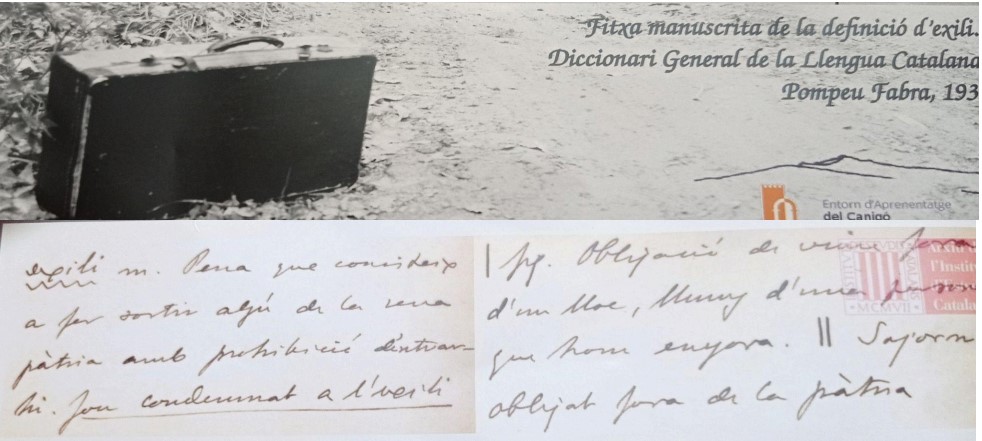 Fitxa manuscrita de la definició d'exili.
Diccionari General de la Llengua Catalana
Pompeu Fabra, 193
Entorn d'Aprenentatge
del Canigó
exili m. Pena que consisteix
a fer sortir algú de la seua
pàtria amb prohibició d'entrar-
hi. Fou condemnat a l'exili
| fig. Obligació de viure fora
d'un lloc, lluny d'una person
que hom enyora. || Sojorn
obligat fora de la pàtria
l'Instit
Catala
MCMVII